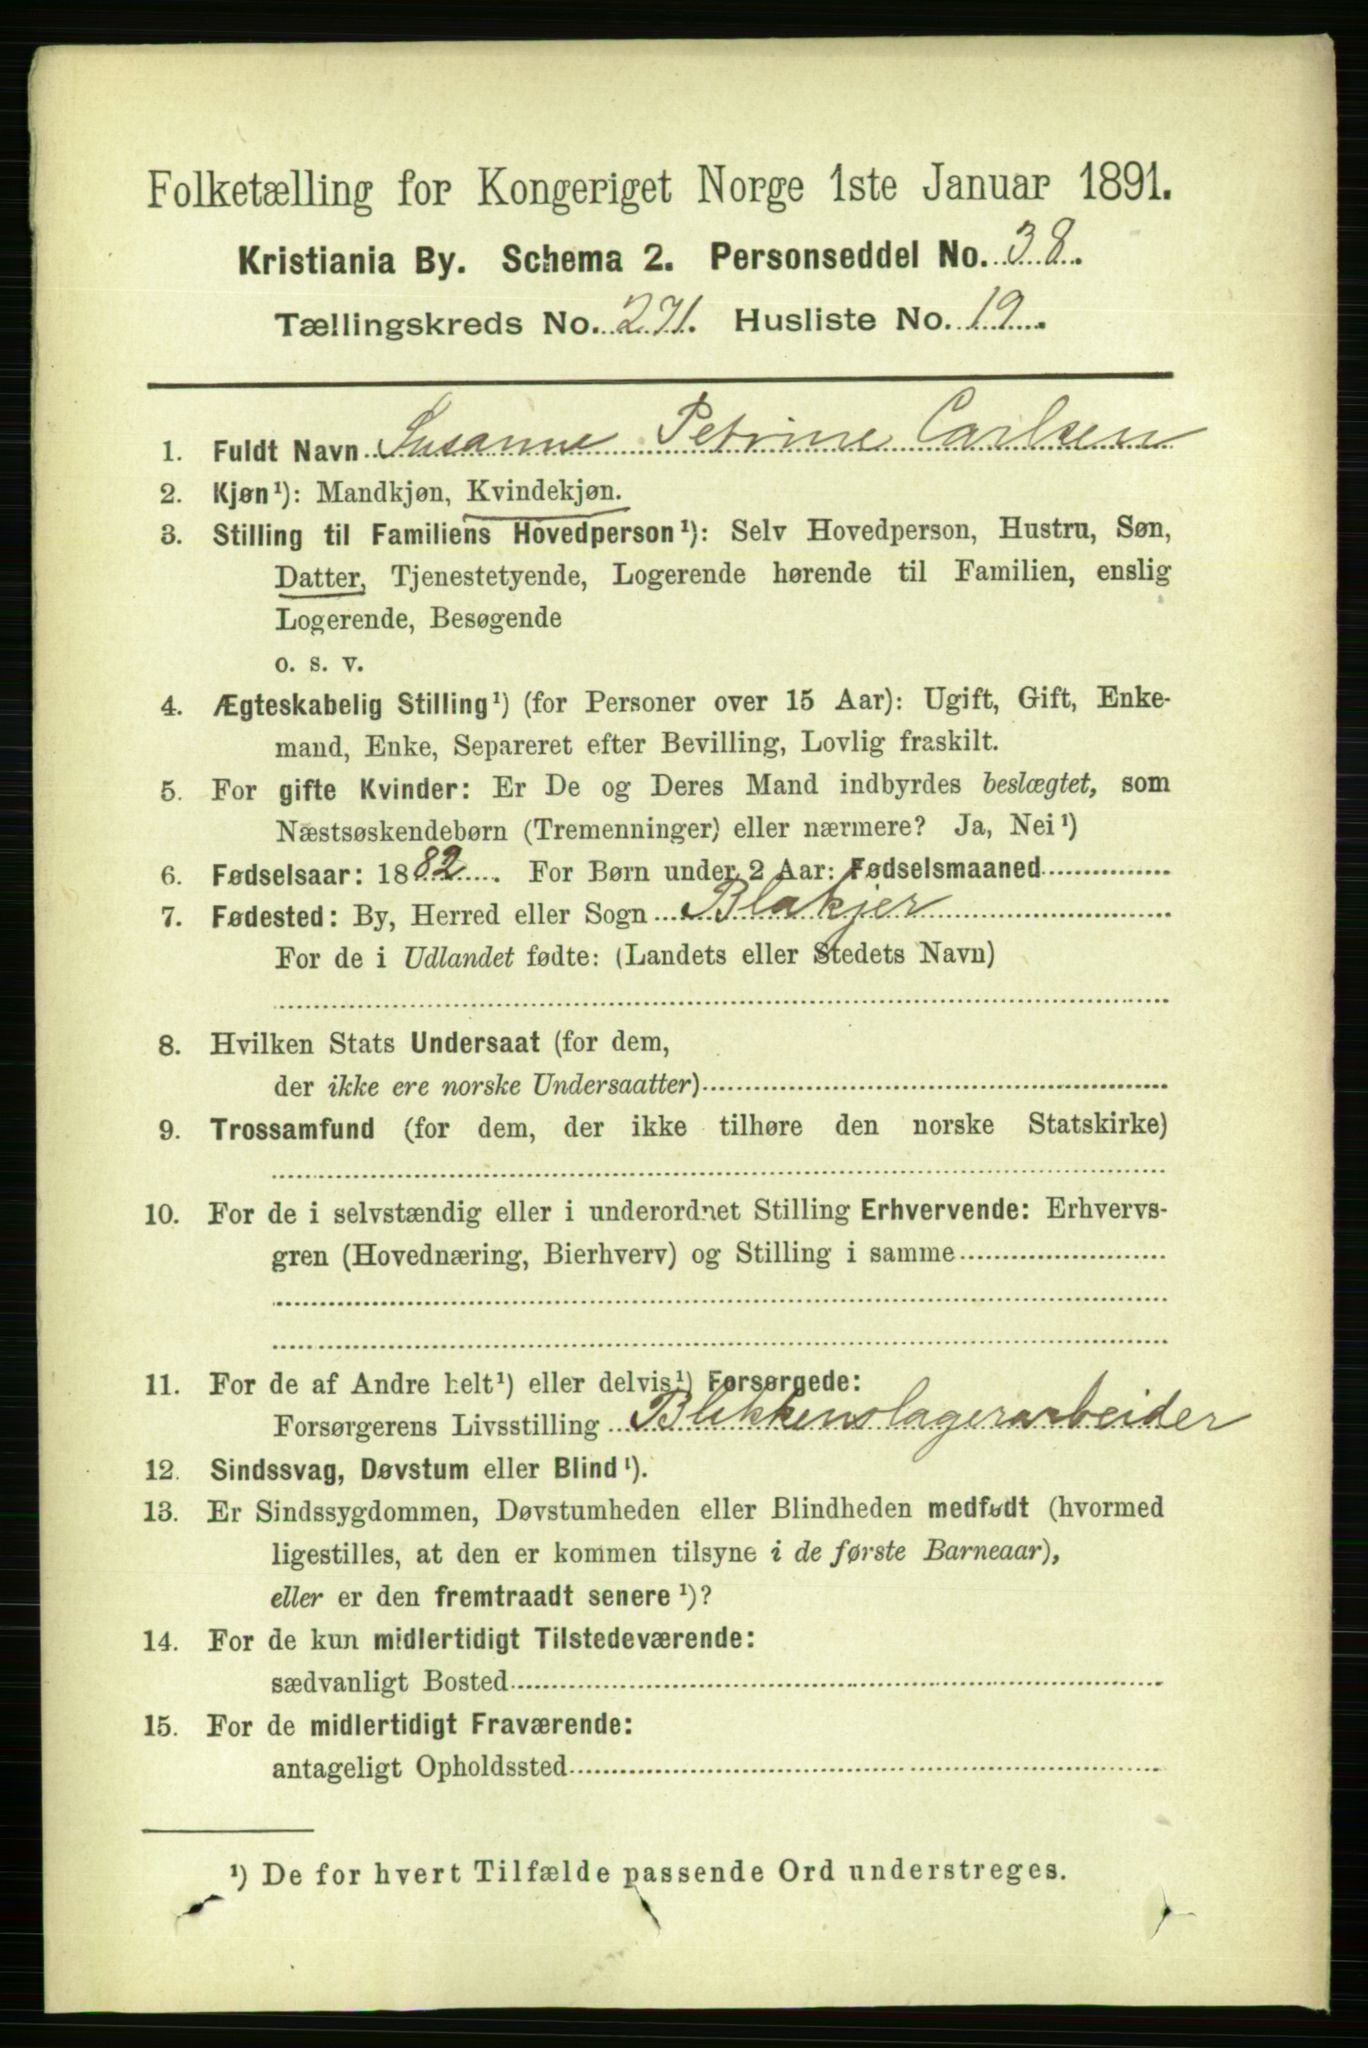 Folketælling for Kongeriget Norge 1ste Januar 1891.
Kristiania By. Schema 2. Personseddel No. 38.
Tællingskreds No. 271. Husliste No. 19.
1. Fuldt Navn Susanne Petrine Carlsen
2. Kjøn¹): Mandkjøn, Kvindekjøn.
3. Stilling til Familiens Hovedperson¹): Selv Hovedperson, Hustru, Søn,
Datter, Tjenestetyende, Logerende hørende til Familien, enslig
Logerende, Besøgende
o. s. v.
4. Ægteskabelig Stilling¹) (for Personer over 15 Aar): Ugift, Gift, Enke-
mand, Enke, Separeret efter Bevilling, Lovlig fraskilt.
5. For gifte Kvinder: Er De og Deres Mand indbyrdes beslægtet, som
Næstsøskendebørn (Tremenninger) eller nærmere? Ja, Nei¹)
6. Fødselsaar: 1882. For Børn under 2 Aar: Fødselsmaaned
7. Fødested: By, Herred eller Sogn Blakjer
For de i Udlandet fødte: (Landets eller Stedets Navn)
8. Hvilken Stats Undersaat (for dem,
der ikke ere norske Undersaatter)
9. Trossamfund (for dem, der ikke tilhøre den norske Statskirke)
10. For de i selvstændig eller i underordnet Stilling Erhvervende: Erhvervs-
gren (Hovednæring, Bierhverv) og Stilling i samme
11. For de af Andre helt¹) eller delvis¹) Forsørgede:
Forsørgerens Livsstilling Blikkenslagerarbeider
12. Sindssvag, Døvstum eller Blind¹).
13. Er Sindssygdommen, Døvstumheden eller Blindheden medfødt (hvormed
ligestilles, at den er kommen tilsyne i de første Barneaar),
eller er den fremtraadt senere¹)?
14. For de kun midlertidigt Tilstedeværende:
sædvanligt Bosted
15. For de midlertidigt Fraværende:
antageligt Opholdssted
¹) De for hvert Tilfælde passende Ord understreges.